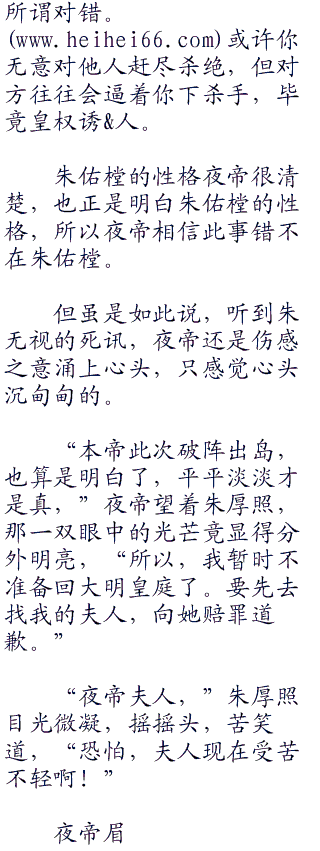 所谓对错。
(www.heihei66.com)或许你
无意对他人赶尽杀绝，但对
方往往会逼着你下杀手，毕
竟皇权诱&人。
朱佑樘的性格夜帝很清
楚，也正是明白朱佑樘的性
格，所以夜帝相信此事错不
在朱佑樘。
但虽是如此说，听到朱
无视的死讯，夜帝还是伤感
之意涌上心头，只感觉心头
沉甸甸的。
“本帝此次破阵出岛，
也算是明白了，平平淡淡才
是真，”夜帝望着朱厚照，
那一双眼中的光芒竟显得分
外明亮，“所以，我暂时不
准备回大明皇庭了。要先去
找我的夫人，向她赔罪道
歉。”
“夜帝夫人，”朱厚照
目光微凝，摇摇头，苦笑
道，“恐怕，夫人现在受苦
不轻啊！”
夜帝眉